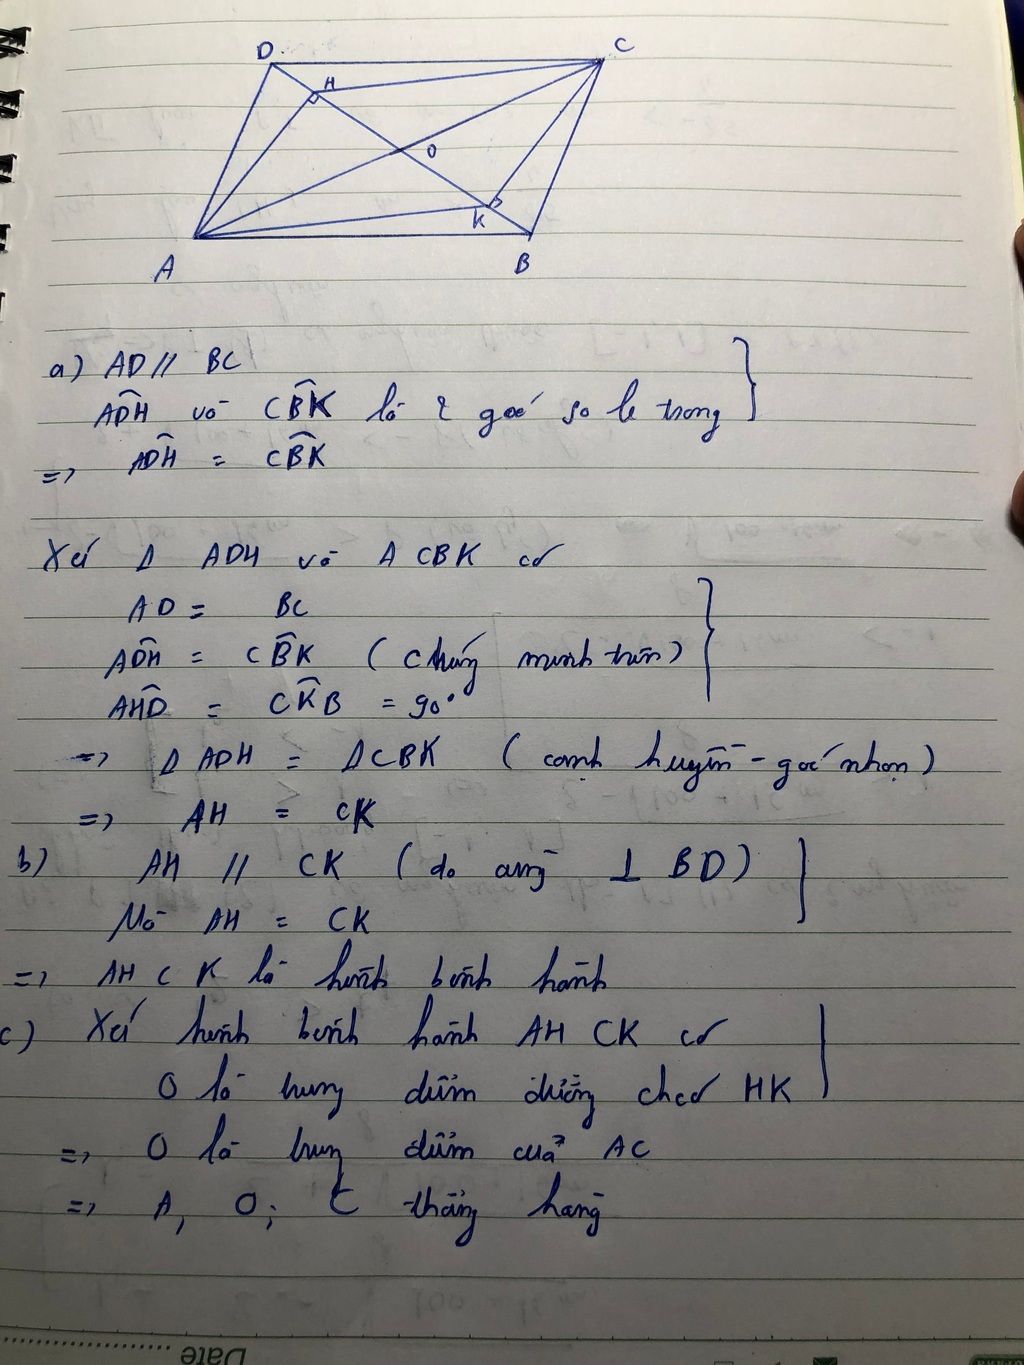 D
C
H
O
K
A
B
a) AD // BC
ADH và CBK là 2 góc so le trong
=> ADH = CBK
Xét Δ ADH và Δ CBK có
AD = BC
ADH = CBK (chứng minh trên)
AHD = CKB = 90°
=> Δ ADH = Δ CBK (cạnh huyền - góc nhọn)
=> AH = CK
b) AH // CK (do cùng ⊥ BD)
Mà AH = CK
=> AHCK là hình bình hành
c) Xét hình bình hành AHCK có
O là trung điểm đường chéo HK
=> O là trung điểm của AC
=> A, O; C thẳng hàng
Date